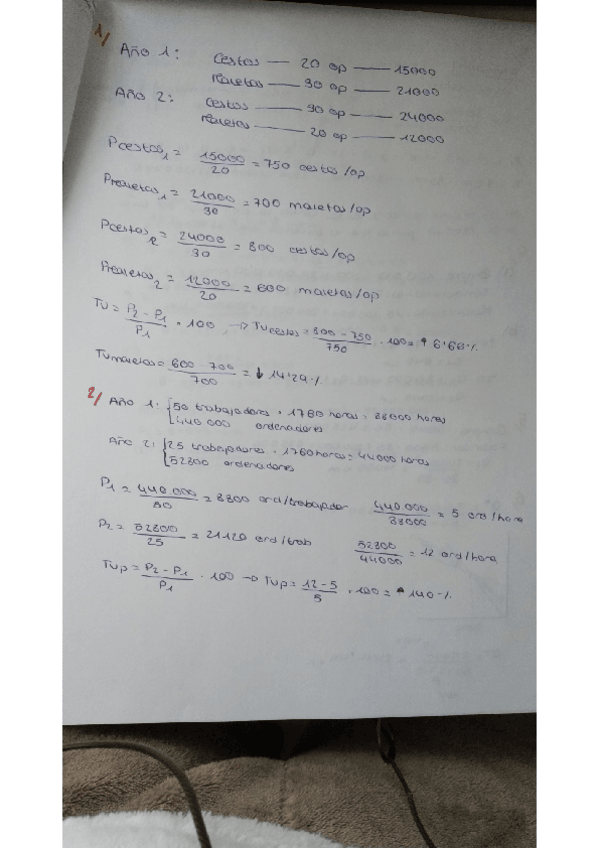 1/
Año 1: Cestas — 20 op — 15000
Maletas — 30 op — 21000
Año 2: Cestas — 30 op — 24000
Maletas — 20 op — 12000
Pcestas₁ = 15000/20 = 750 cestas/op
Pmaletas₁ = 21000/30 = 700 maletas/op
Pcestas₂ = 24000/30 = 800 cestas/op
Pmaletas₂ = 12000/20 = 600 maletas/op
TV = P2 - P1/P1 · 100 → TVcestas = 800 - 750/750 · 100 = ↑ 6'66 %
TVmaletas = 600 - 700/700 = ↓ 14'29 %
2/ Año 1: { 50 trabajadores · 1760 horas = 88000 horas
440 000 ordenadores
Año 2: { 25 trabajadores · 1760 horas = 44000 horas
52800 ordenadores
P1 = 440.000/50 = 8800 ord/trabajador 440.000/88000 = 5 ord/hora
P2 = 52800/25 = 21120 ord/trab 52800/44000 = 12 ord/hora
TVp = P2 - P1/P1 · 100 → TVp = 12 - 5/5 · 100 = ↑ 140 %